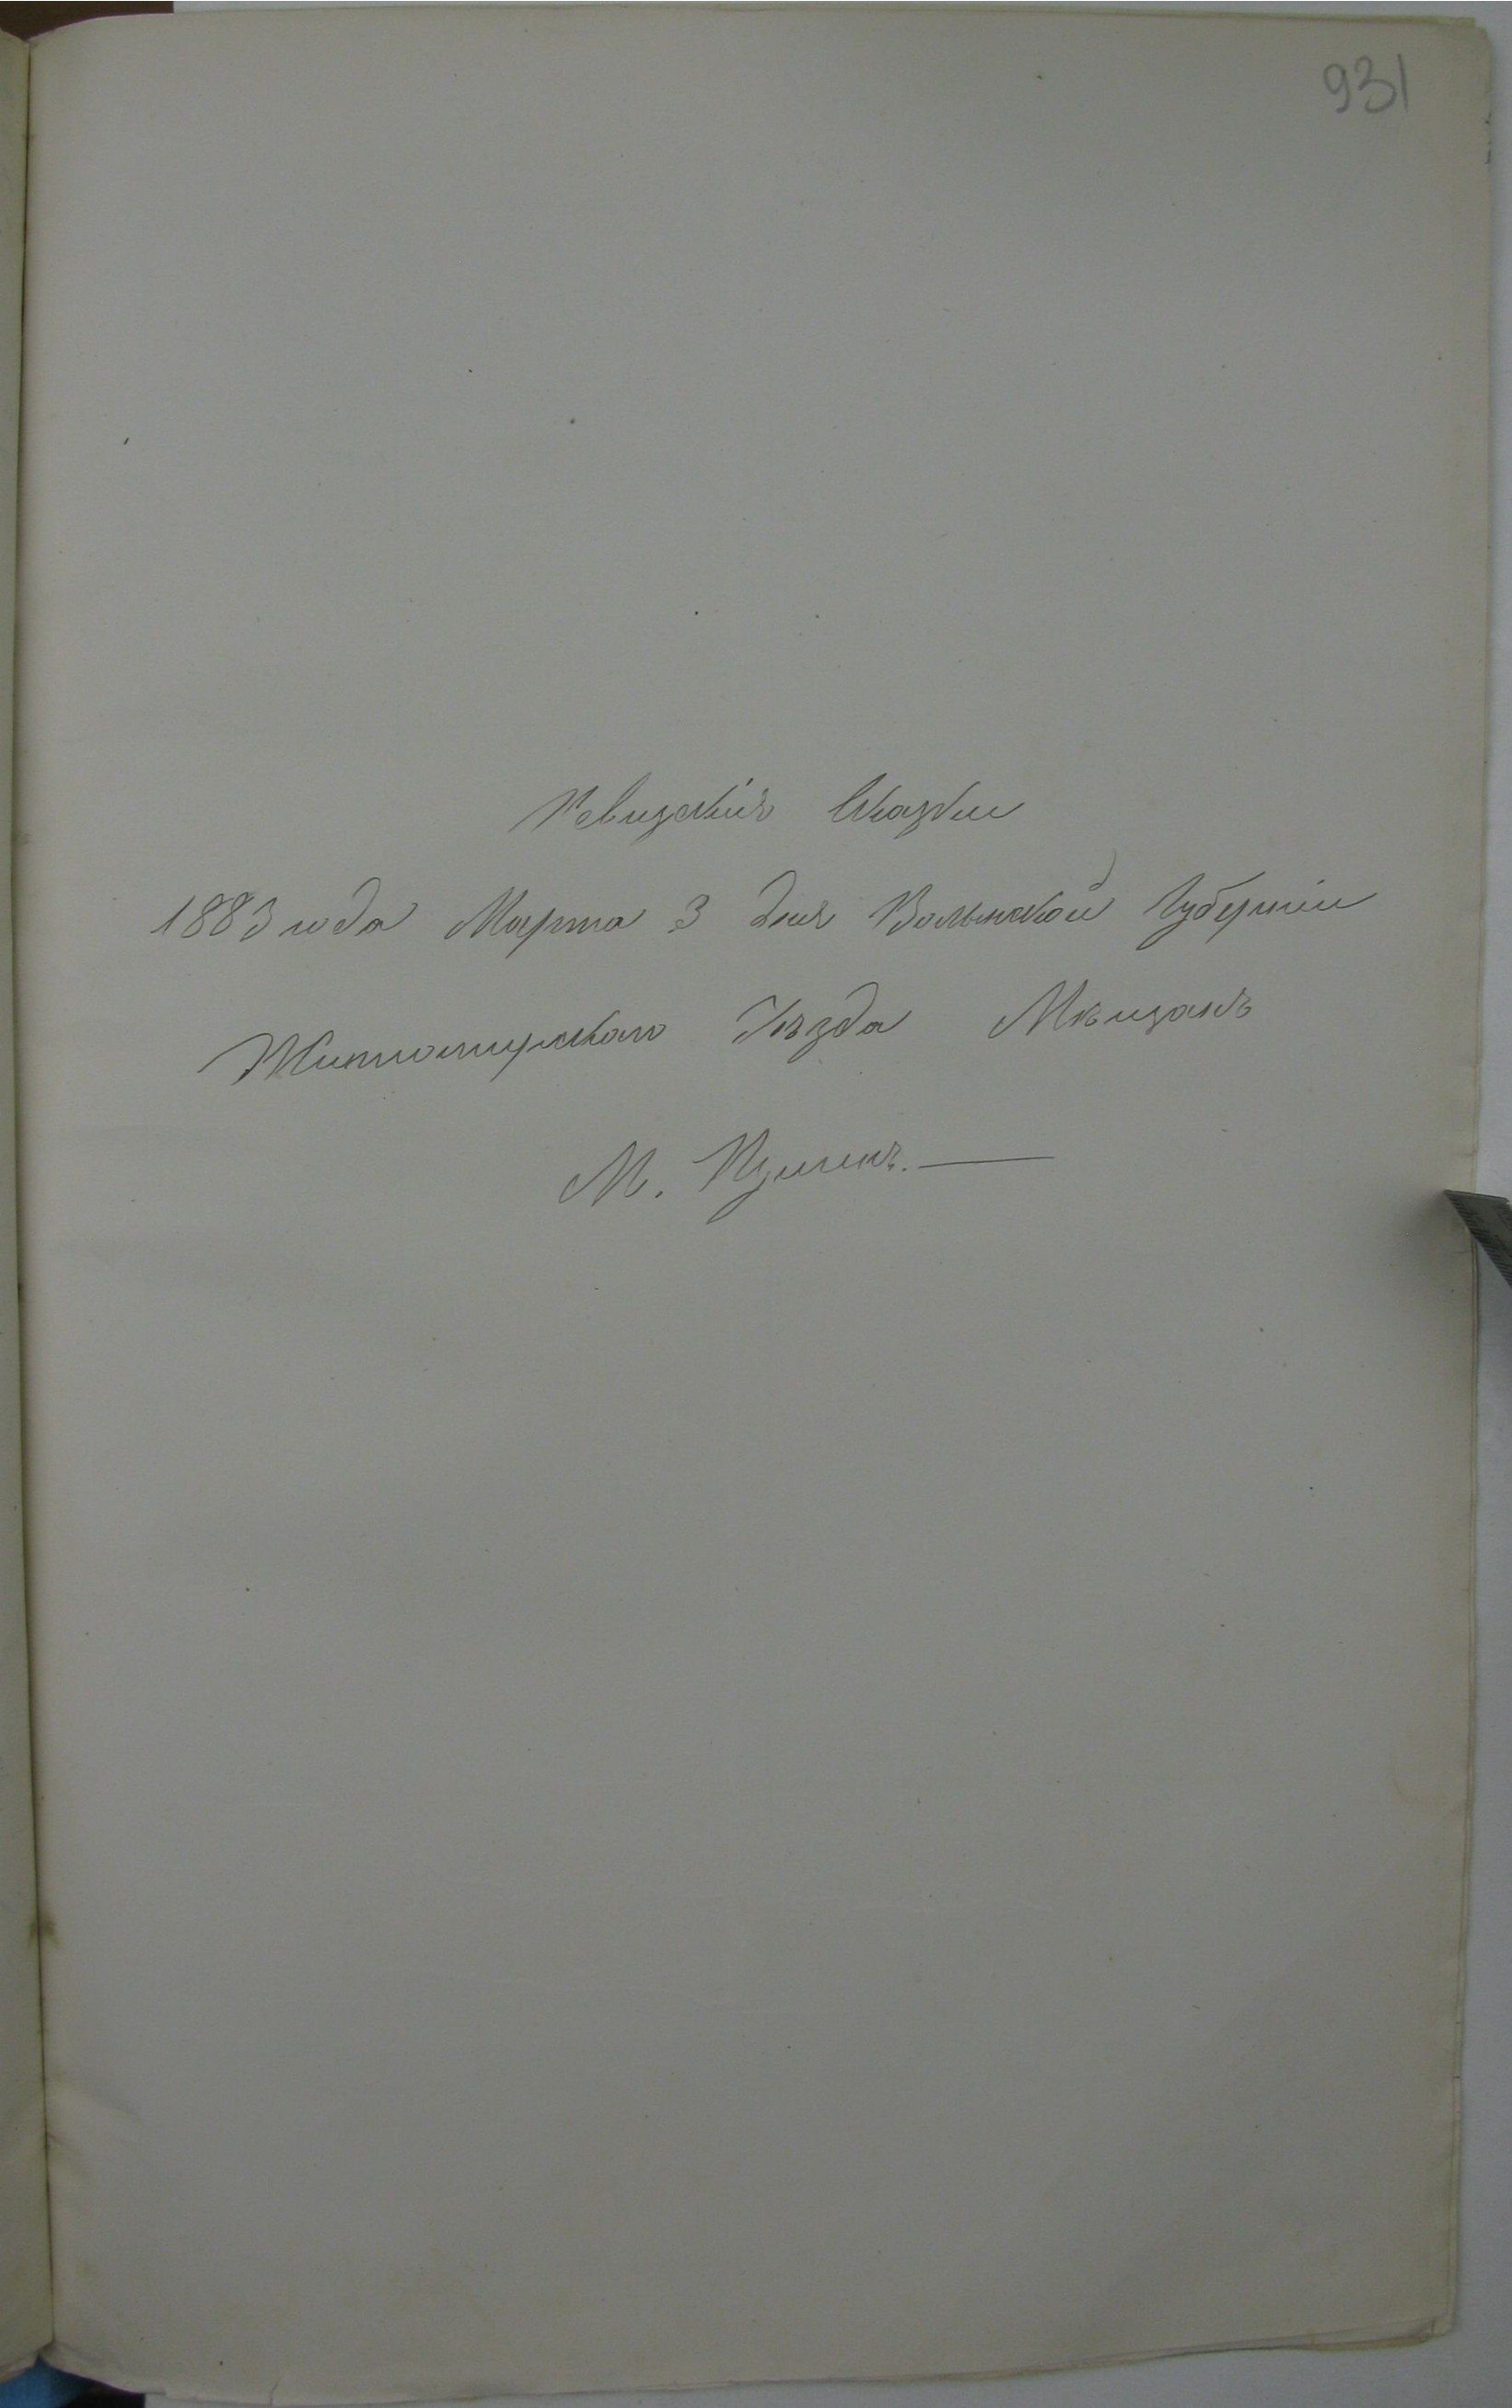 931
Ревизскія Сказки
1883 года Марта 3 дня Волынской Губерніи
Житомирскаго Уѣзда Мѣщанъ
М.